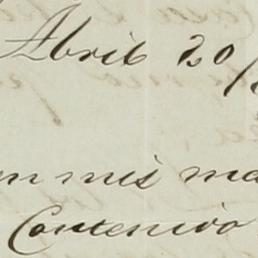 Abril 20/
en mis ma
Contenido